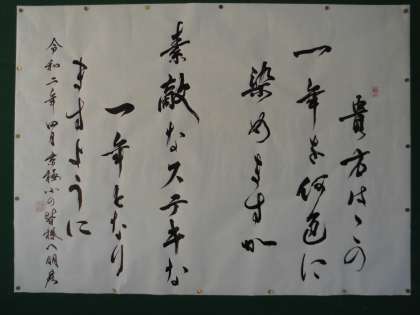 貴方はこの
一年を何色に
染めますか
素敵なステキな
一年となり
ますように
令和二年 四月 小の皆様へ